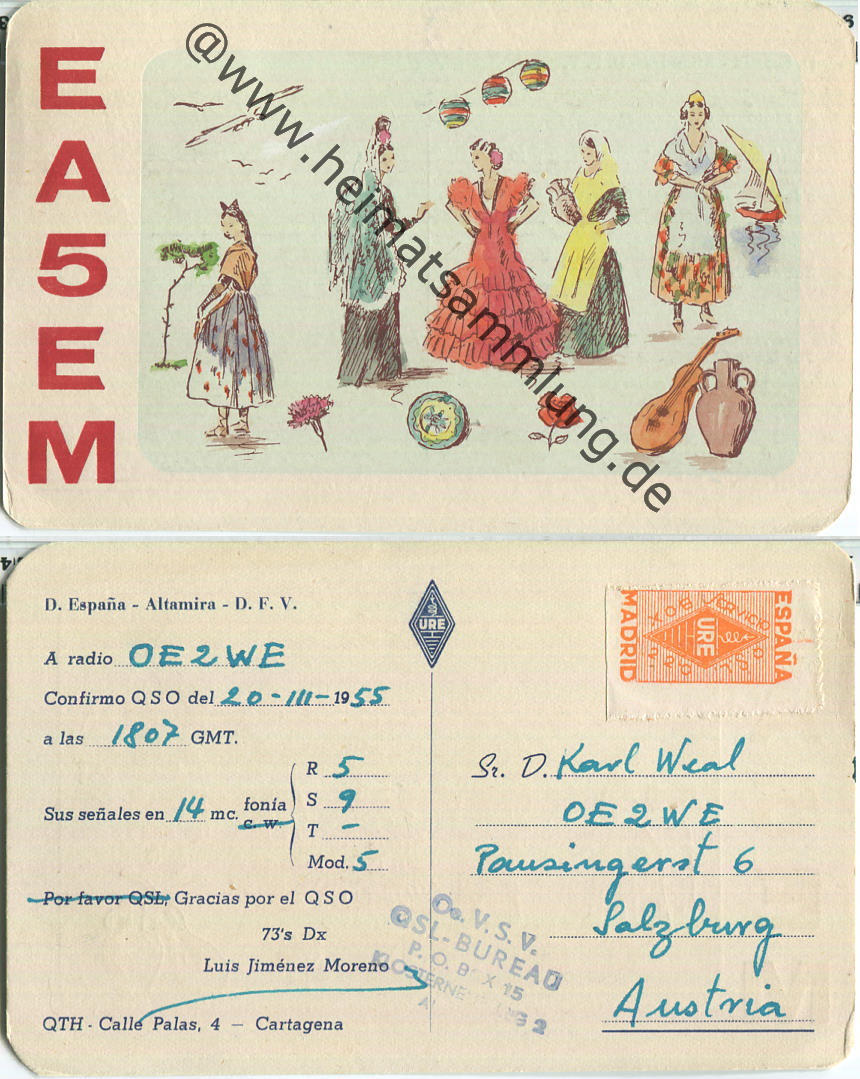 EA5EM
@www.heimatsammlung.de
D. España - Altamira - D. F. V.
A radio OE2WE
Confirmo QSO del 20-III-1955
a las 1807 GMT.
Sus señales en 14 mc. fonía
c. w.
R 5
S 9
T -
Mod. 5
Por favor QSL, Gracias por el QSO
73's Dx
Luis Jiménez Moreno
QTH - Calle Palas, 4 - Cartagena
URE
MADRID
ESPAÑA
URE
Sr. D. Karl Weal
OE2WE
Pausingerst 6
Salzburg
Austria
Oe. V. S. V.
QSL-BUREAU
P. O. BOX 15